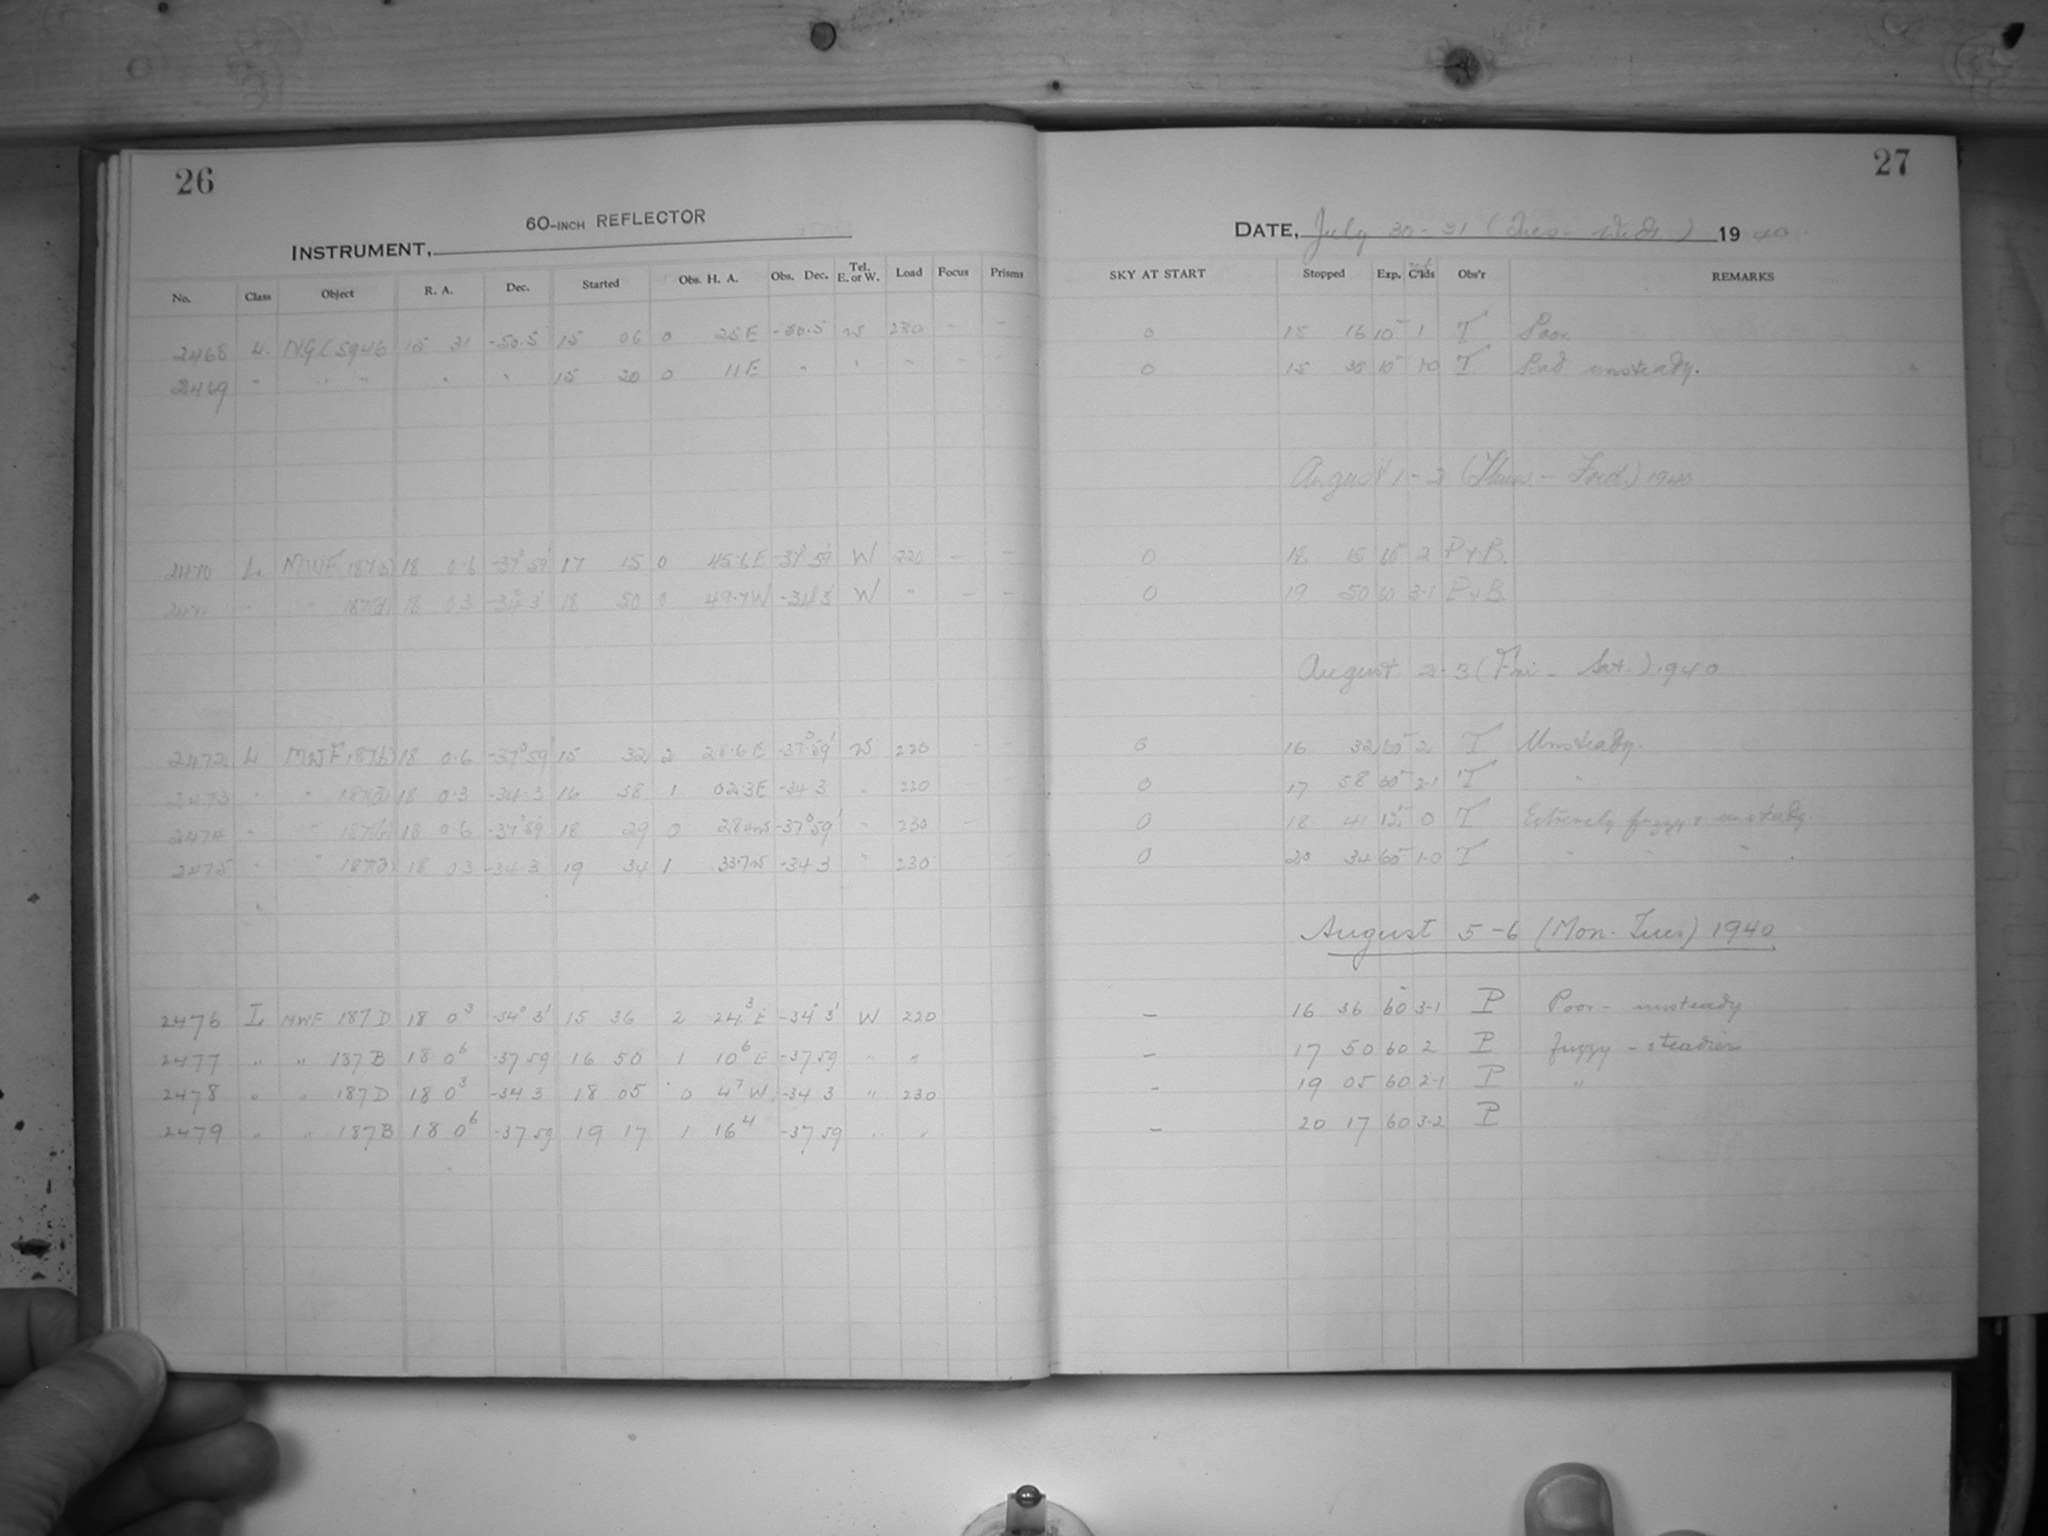 26
60-INCH REFLECTOR
INSTRUMENT,
No. Class Object R. A. Dec. Started Obs. H. A. Obs. Dec. Tel. E. or W. Load Focus Prisms
2468 L. NGC 5946 15 31 -50.5 15 06 0 25 E -50.5 W 230 - -
2469 " " " " " 15 20 0 11 E " " " - -
2470 L. MWF 187(b) 18 0.6 -37° 59' 17 15 0 45.6 E -37° 59' W 220 - -
2471 " " 187(d) 18 0.3 -34° 3' 18 50 0 49.7 W -34° 3' W " - -
2472 L MWF 187(b) 18 0.6 -37° 59' 15 32 2 28.6 E -37° 59' W 220 - -
2473 " " 187(d) 18 0.3 -34 3 16 58 1 02.3 E -34 3 " 220
2474 " " 187(b) 18 0.6 -37° 59' 18 29 0 28 W -37° 59' " 230
2475 " " 187(d) 18 0.3 -34 3 19 34 1 33.7 W -34 3 " 230
2476 L MWF 187D 18 0³ -34° 3' 15 36 2 24.³ E -34° 3' W 220
2477 " " 187B 18 0⁶ -37 59 16 50 1 10⁶ E -37 59 " "
2478 " " 187D 18 0³ -34 3 18 05 0 4⁷ W -34 3 " 230
2479 " " 187B 18 0⁶ -37 59 19 17 1 16⁴ -37 59 " "
27
DATE, July 30-31 (Tues - Weds) 1940
SKY AT START Stopped Exp. C'lds Obs'r REMARKS
0 15 16 10 1 T Poor.
0 15 30 10 1-0 T Bad unsteady.
August 1-2 (Thurs. - Frid.) 1940
0 18 15 60 2 P+B.
0 19 50 60 3-1 P+B.
August 2-3 (Fri - Sat.) 1940
0 16 32 60 2 T Unsteady.
0 17 58 60 2-1 T "
0 18 41 12 0 T Extremely fuzzy & unsteady.
0 20 34 60 1-0 T " " "
August 5-6 (Mon-Tues) 1940
- 16 36 60 3-1 P Poor - unsteady
- 17 50 60 2 P fuzzy - steadier
- 19 05 60 2-1 P "
- 20 17 60 3-2 P